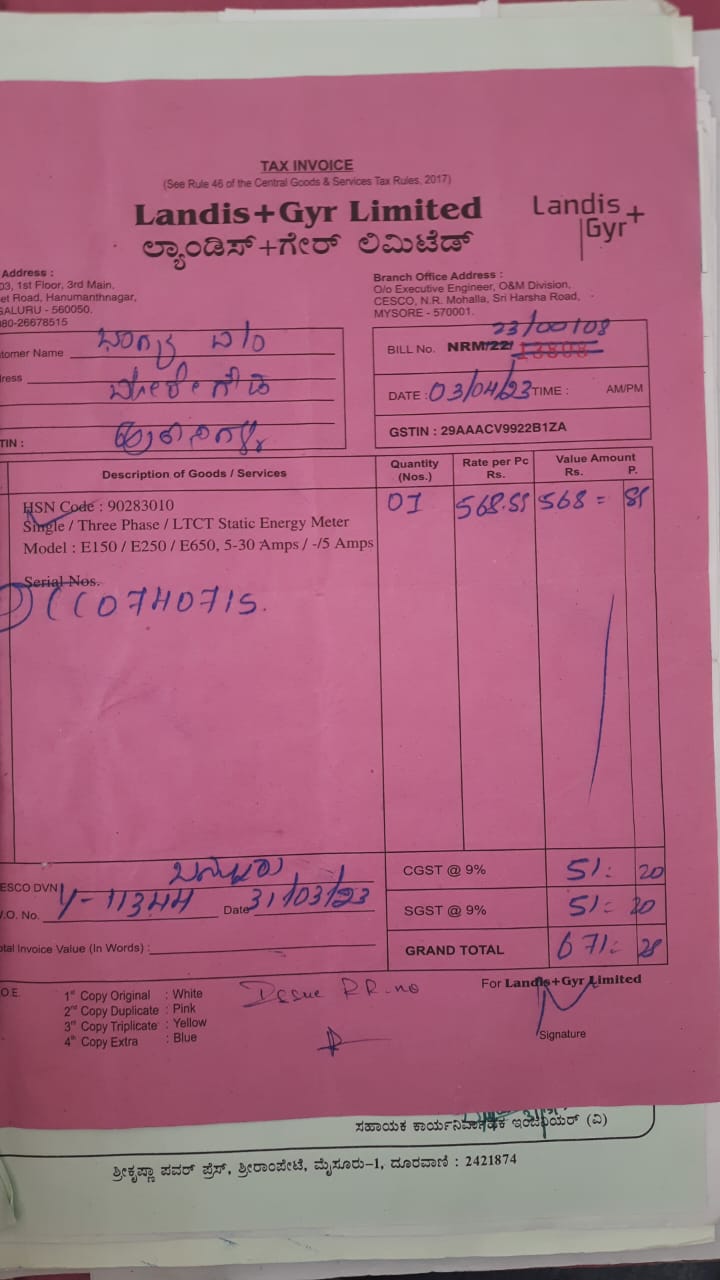 TAX INVOICE
(See Rule 46 of the Central Goods & Services Tax Rules, 2017)
Landis+Gyr Limited
ಲ್ಯಾಂಡಿಸ್+ಗೇರ್ ಲಿಮಿಟೆಡ್
Landis+
Gyr
Address :
03, 1st Floor, 3rd Main,
et Road, Hanumanthnagar,
GALURU - 560050.
080-26678515
Branch Office Address :
O/o Executive Engineer, O&M Division,
CESCO, N.R. Mohalla, Sri Harsha Road,
MYSORE - 570001.
tomer Name ಭಾಗ್ಯ
ress
TIN :
23/00108
BILL No. NRM/22/
DATE : 03/04/23 TIME : AM/PM
GSTIN : 29AAACV9922B1ZA
Description of Goods / Services
Quantity (Nos.)
Rate per Pc Rs.
Value Amount Rs. P.
HSN Code : 90283010
Single / Three Phase / LTCT Static Energy Meter
Model : E150 / E250 / E650, 5-30 Amps / -/5 Amps
01 568.85 568 = 85
Serial Nos.
ESCO DVN
.O. No. Y-11344 Date 31/03/23
CGST @ 9% 51: 20
SGST @ 9% 51: 20
otal Invoice Value (In Words) :
GRAND TOTAL 671: 28
O.E.
1st Copy Original : White
2nd Copy Duplicate : Pink
3rd Copy Triplicate : Yellow
4th Copy Extra : Blue
Issue RR.no
For Landis+Gyr Limited
Signature
ಸಹಾಯಕ ಕಾರ್ಯನಿರ್ವಾಹಕ ಇಂಜಿನಿಯರ್ (ವಿ)
ಶ್ರೀಕೃಷ್ಣಾ ಪವರ್ ಪ್ರೆಸ್, ಶ್ರೀರಾಂಪೇಟೆ, ಮೈಸೂರು-1, ದೂರವಾಣಿ : 2421874